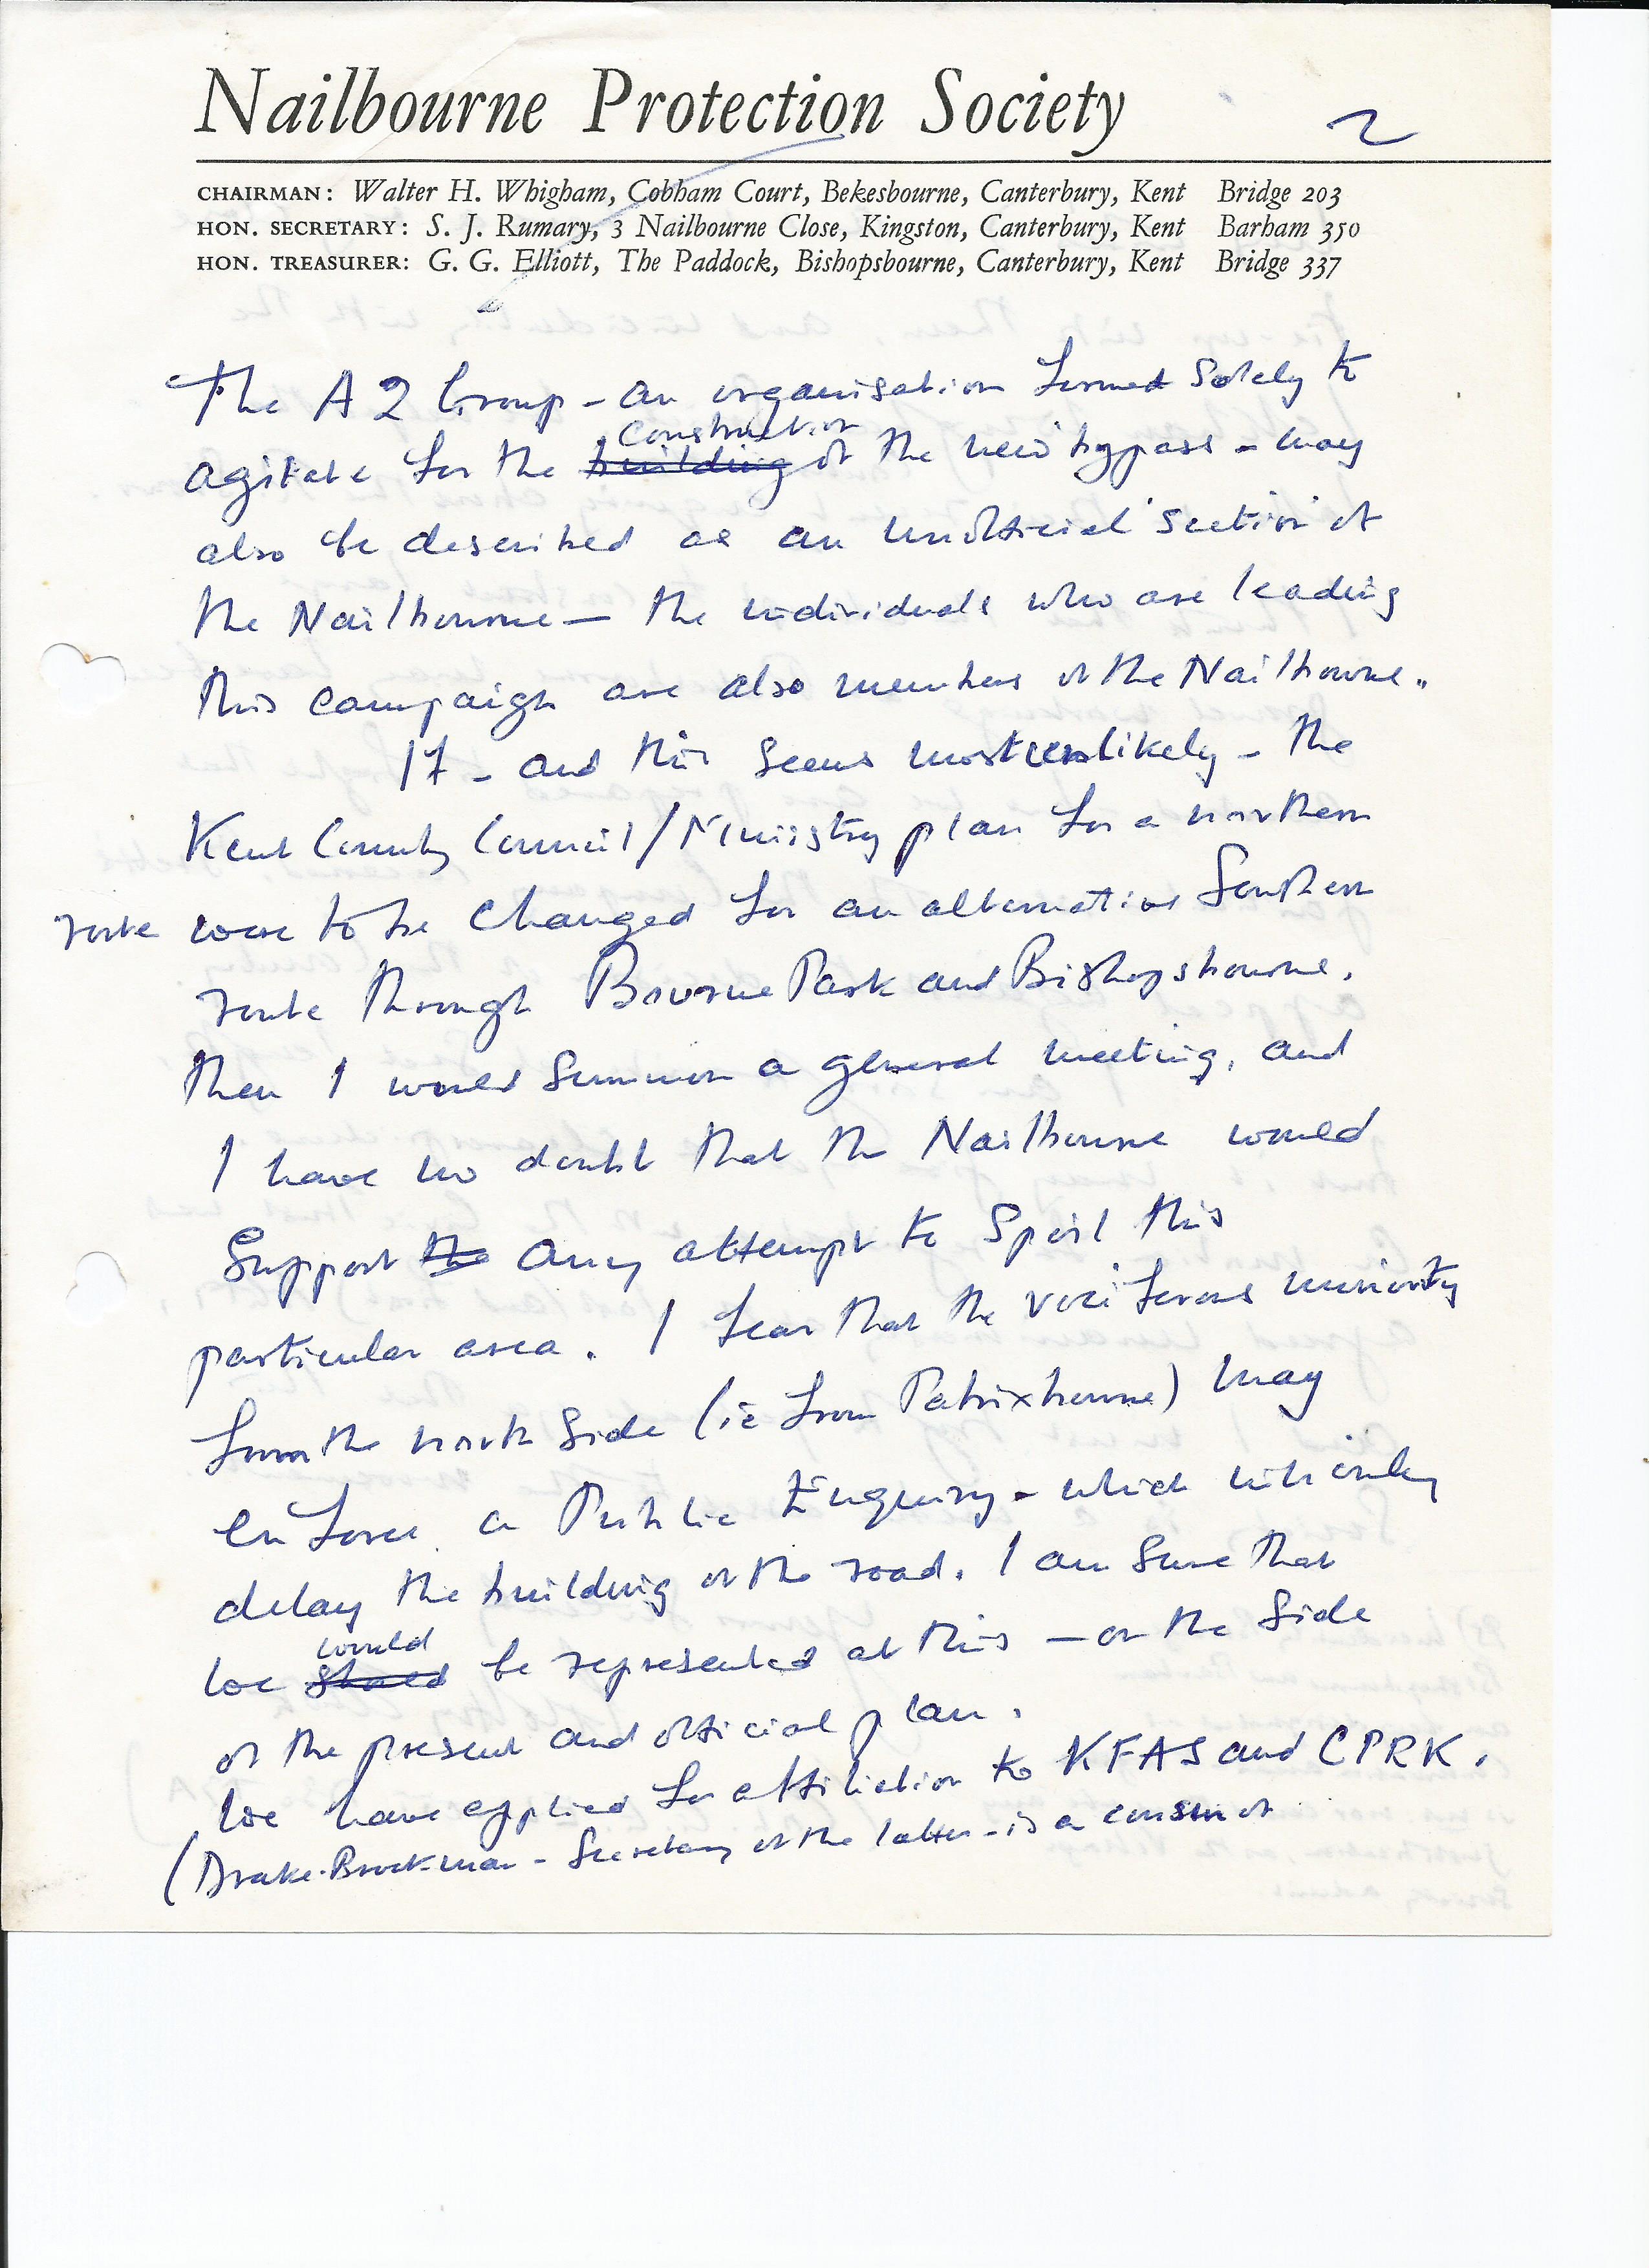 Nailbourne Protection Society
2
CHAIRMAN: Walter H. Whigham, Cobham Court, Bekesbourne, Canterbury, Kent Bridge 203
HON. SECRETARY: S. J. Rumary, 3 Nailbourne Close, Kingston, Canterbury, Kent Barham 350
HON. TREASURER: G. G. Elliott, The Paddock, Bishopsbourne, Canterbury, Kent Bridge 337
The A2 Group - an organisation formed solely to
construction
agitate for the building of the new bypass - may
also be described as an unofficial 'section' of
the Nailbourne — the individuals who are leading
this campaign are also members of the Nailbourne.
If - and this seems most unlikely - the
Kent County Council/Ministry plan for a northern
route were to be changed for an alternative Southern
route through Bourne Park and Bishopsbourne,
then I would summon a general meeting, and
I have no doubt that the Nailbourne would
support the any attempt to spoil this
particular area. I fear that the vociferous minority
from the north side (ie from Patrixbourne) may
enforce a Public Enquiry - which will only
delay the building of the road. I am sure that
would
we should be represented at this — on the side
of the present and official plan.
We have applied for affiliation to KFAS and CPRK.
(Drake-Brockman - Secretary of the latter - is a cousin of